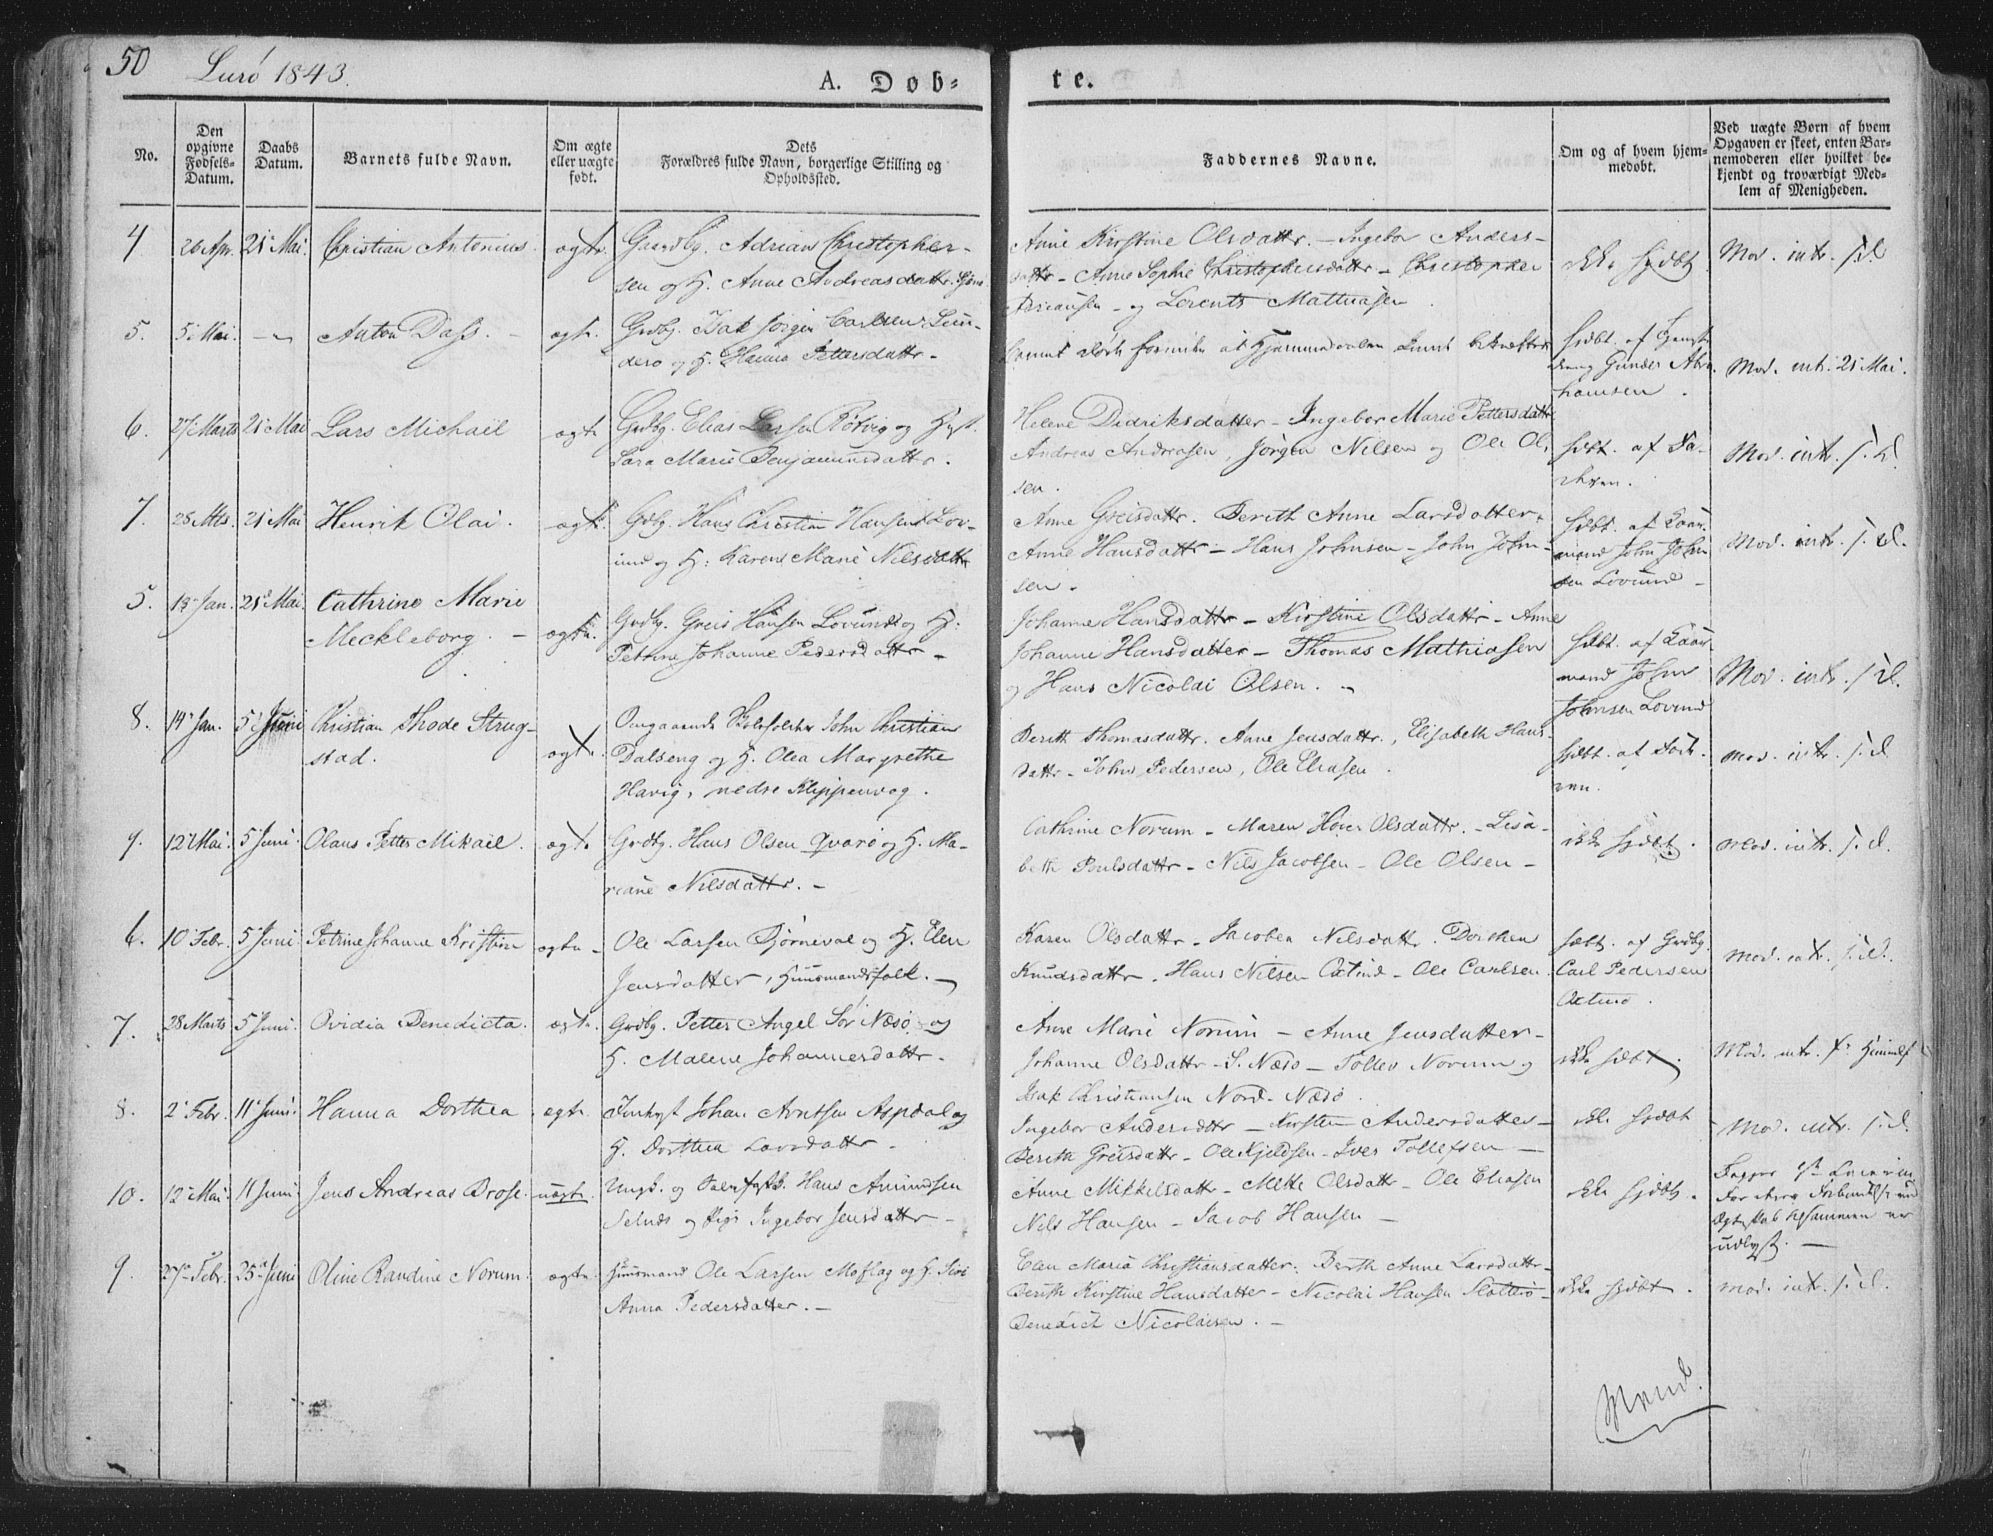 50
Lurö 1843.
A. Døb-
te.
No.
Den opgivne Fødsels-Datum.
Daabs Datum.
Barnets fulde Navn.
Om ægte eller uægte født.
Dets Forældres fulde Navn, borgerlige Stilling og Opholdssted.
Faddernes Navne.
Om og af hvem hjemmedøbt.
Ved uægte Børn af hvem Opgaven er skeet, enten Barnemoderen eller hvilket bekjendt og troværdigt Medlem af Menigheden.
4 26 Apr. 21 Mai. Christian Antonius. ægte. Gaardb. Adrian Christopher-
sen og H. Anne Andreasdattr.
Anne Kirstine Olsdattr. - Ingebor Anders-
dattr - Anne Sophie Christophersdattr - Christopher
og Lorents Mathiasen
ikke hjdbt
Mod. intr. s. d.
5. 5 Mai. Anton Dass. - ægte. Grdbg. Isak Jørgen Carlsen
og H. Hanna Pettersdattr -
hjdbt. af
Gunder Abra-
hamsen.
Mod. intr. 21 Mai.
6. 27 Marts 21 Mai Lars Michaël ægte Grdbg. Elias Larsen Røtvig og Hust.
Sara Marie Benjaminsdattr.
Helene Didriksdatter - Ingebor Marie Pettersdattr
Andreas Andreasen, Jörgen Nilsen og Ole Ol-
sen.
hjdbt. af Fa-
deren.
Mod. intr. s. d.
7. 28 Mts. 21 Mai Henrik Olai. ægte. Grdbg. Hans Christian Hansen Lov-
und og H. Karen Marie Nilsdattr
Anne Greisdattr. Berith Anne Larsdatter -
Anne Hansdattr - Hans Johnsen - John John-
sen -
hjdbt. af
mand John John
sen Lovund -
Mod. intr. s. d.
5. 13 Jan. 21 Mai. Cathrine Marie
Meckleborg. - ægte. Grdbg. Greis Hansen Lovund og H.
Petrine Johanne Pedersdattr -
Johanne Hansdattr - Kirstine Olsdattr - Anne
Johanne Hansdatter - Thomas Mathiasen
og Hans Nicolai Olsen. -
hjdbt. af
mand John
Johnsen Lovund
Mod. intr. s. d.
8. 14 Jan. 5 Juni Christian Thode Strug-
stad. ægte. Omgaaende Skoleholder John Christian
Dalseng og H. Olea Margrethe
Havig, nedre Klippenvog.
Berith Thomasdattr. Anne Jensdattr., Elisabeth Hans-
dattr - John Pedersen, Ole Eliasen.
hjdbt. af Fade-
ren.
Mod. intr. s. d.
9. 12 Mai. 5 Juni. Olaus Petter Mikaël. ægte Grdbg. Hans Olsen Qvarø og H. Ma-
riane Nilsdattr. -
Cathrine Norum - Maren Hover Olsdattr. - Lisa-
beth Poulsdattr - Nils Jacobsen - Ole Olsen -
ikke hjdbt.
Mod. intr. s. d.
6. 10 Febr. 5 Juni. Petrine Johanne Kristine ægte - Ole Larsen Bjørnevae og H. Elen
Jensdatter, Huusmandsfolk. -
Karen Olsdattr - Jacobea Nilsdattr. Dorthea
Knudsdattr. Hans Nilsen Oxtind - Ole Carlsen
hjdbt. af Grdbg.
Carl Pedersen
Oxtind.
Mod. intr. s. d.
7. 28 Marts 5 Juni. Ovidia Benedicta. ægte. Grdbg. Petter Angel Sør Næsø og
H. Malene Johannesdattr.
Anne Marie Norum - Anne Jensdatter -
Johanne Olsdattr - S. Næsø - Tollev Norum og
Isak Christiansen Nord-Næsø.
ikke hjdbt.
Mod. intr.
8. 2 Febr. 11 Juni. Hanna Dorthea ægte. Indhyst Johan Arntsen Aspdal og
H. Dorthea Larsdattr -
Ingebor Andersdttr - Kirsten Andersdatter -
Berith Greisdattr - Ole Kjeldsen - Iver Tollefsen -
ikke hjdbt
Mod. intr. s. d.
10. 12 Mai. 11 Juni. Jens Andreas Brose. uægte. Ungk. og Hans Amundsen
Selnæs og Pige Ingebor Jensdattr -
Anne Mikkelsdattr - Mette Olsdattr - Ole Eliasen
Nils Hansen - Jacob Hansen -
ikke hjdbt.
udlyst. -
9. 27 Febr. 25 Juni Oline Randine Norum. ægte Huusmand Ole Larsen Moflag og H. Siri
Anna Pedersdatter. -
Elen Maria Christiansdatter. Berth Anne Larsdattr -
Berith Kirstine Hansdatter - Nicolai Hansen Slotterø -
Benedict Nicolaisen. -
ikke hjdbt.
Mod. intr. s. d.